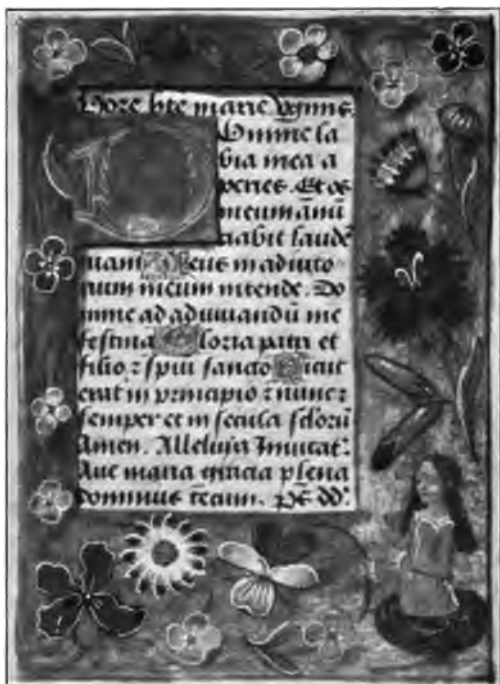 Hore bte marie v̄gīnis.
Domine la
bia mea a
peries. Et os
meum ānū
ciabit laudē
tuam Deus in adiuto
rium meum intende. Do
mine ad adiuuandū me
festina Gloria patri et
filio ⁊ spiu sancto Sicut
erat in principio ⁊ nunc ⁊
semper et in secula sclorū
Amen. Alleluja Inuitat'.
Aue maria gracia plena
dominus tecum. ps dd'.